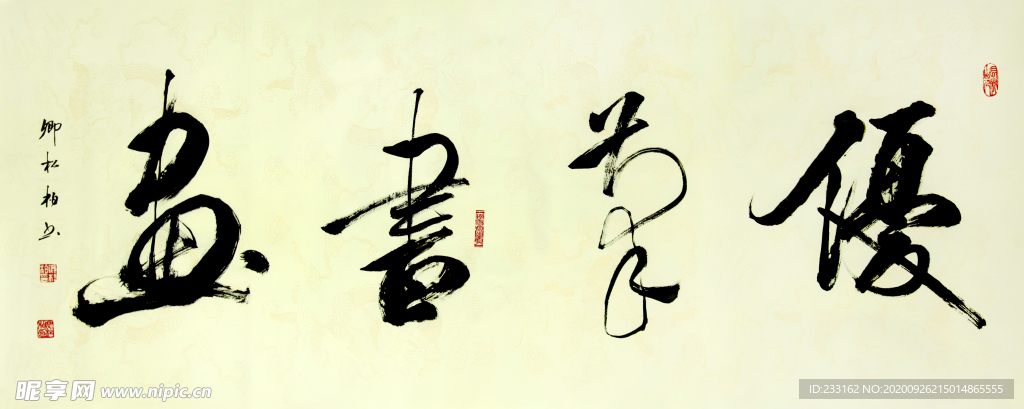 優書畫
卿松柏书
昵享网 www.nipic.cn
ID:233162 NO:20200926215014865555